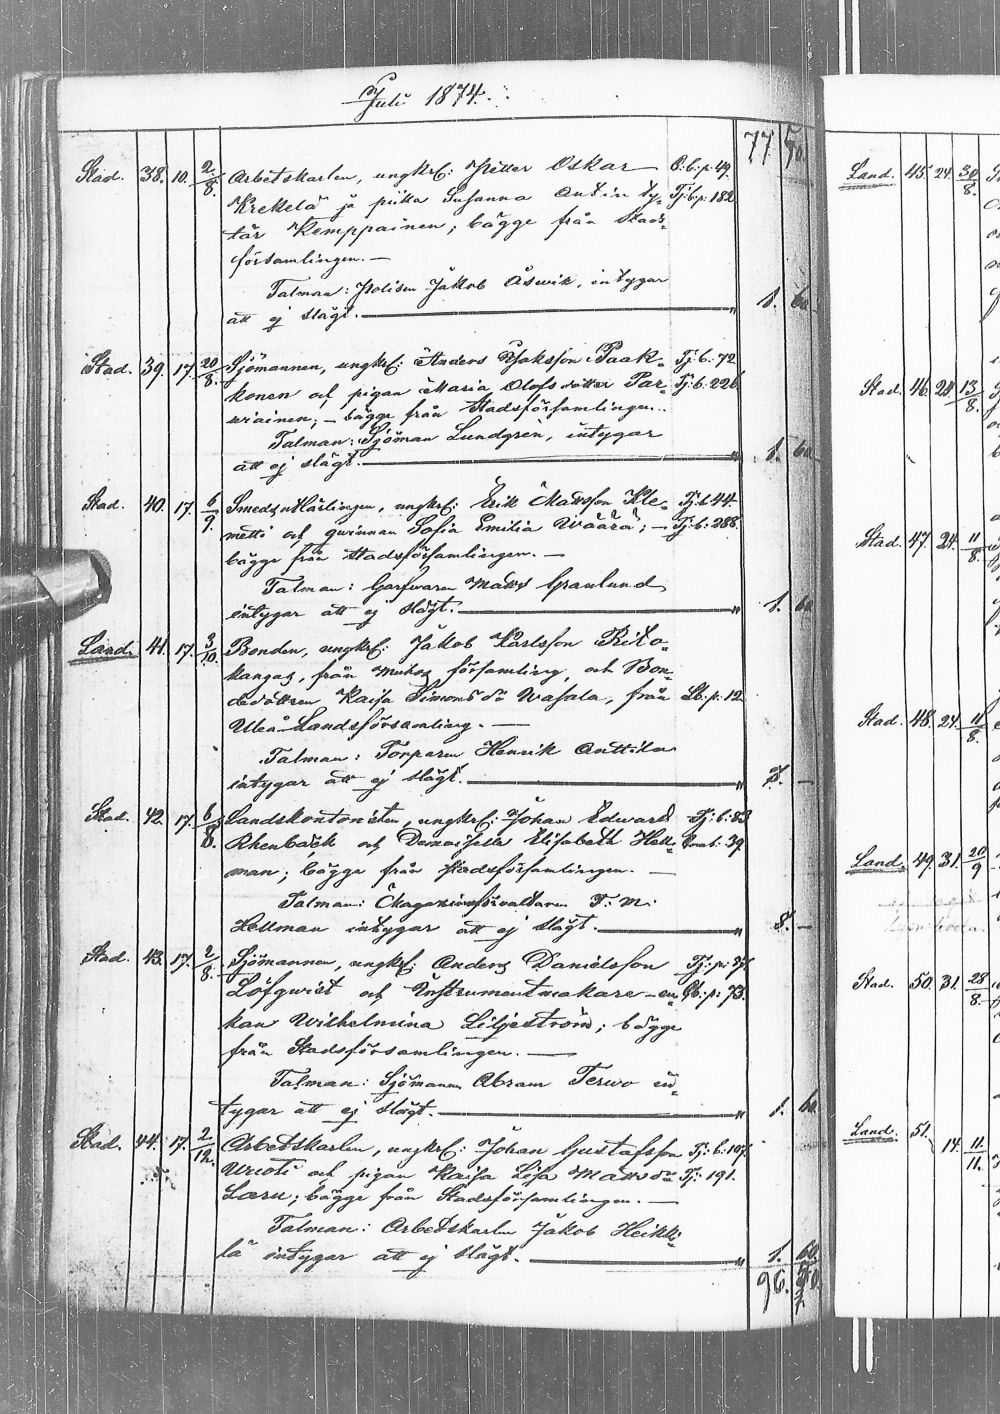 Juli 1874.
77 50.
Stad. 38. 10. 2/8. Arbetskarlen, ungkrl: Petter Oskar — C. b: p: 49.
Krekelä ja piika Susanna Antin ty- Tj: b: p: 182
tär Kemppainen; bägge från Stads-
församlingen. —
Talman: Polisen Jakob Åswik, intygar
att ej slägt. — " 1. 60.
Stad. 39. 17. 20/8. Sjömannen, ungkrl: Anders Isaksson Paak- Tj: b: 72
konen och pigan Maria Olofsdotter Par- Tj: b: 226
wiainen; — bägge från Stadsförsamlingen.
Talman: Sjöman Lundgrén, intygar
att ej slägt. — " 1. 60.
Stad. 40. 17. 6/9. Smedsutlärlingen, ungkrl: Erik Matsson Kle- Tj: b: 44.
metti och qwinnan Sofia Emilia Waara; — Tj: b: 288.
bägge från Stadsförsamlingen. —
Talman: Garfwaren Matts Granlund
intygar att ej slägt. — " 1. 60
Land. 41. 17. 3/10. Bonden, ungkrl: Jakob Karlsson Rito-
kangas, från Muhos församling, och Bon-
dedottren Kaisa Simonsdr Wasala, från Lb: p: 12
Uleå Landsförsamling. —
Talman: Torparen Henrik Anttila
intygar att ej slägt. — " —
Stad. 42. 17. 6/8. Landskontoristen, ungkrl: Johan Edward Tj: b: 83
Rhenbäck och Demoiselle Elisabeth Hell- 39
man; bägge från Stadsförsamlingen. —
Talman: Magazinsförvaltaren F. M.
Hellman intygar att ej slägt. — " 8. —
Stad. 43. 17. 2/8. Sjömannen, ungkrl: Anders Danielsson Tj: p: 37.
Löfqwist och Instrumentmakare-en- p: 73.
kan Wilhelmina Liljeström; bägge
från Stadsförsamlingen. —
Talman: Sjömannen Abram Terwo in-
tygar att ej slägt. — " 1. 60.
Stad. 44. 17. 2/12. Arbetskarlen, ungkrl: Johan Gustafsson Tj: b: 107.
Wuoti och pigan Kaisa Lisa Mattsdr Tj: 191.
Laru; bägge från Stadsförsamlingen. —
Talman: Arbetskarlen Jakob Heikki-
lä intygar att ej slägt. — " 1. 60.
96.
Land. 45. 24. 30/8.
Stad. 46. 24. 13/8.
Stad. 47. 24. 11/8.
Stad. 48. 24. 11/8.
Land. 49. 31. 20/9
Stad. 50. 31. 28/8.
Land. 51. 14. 11/11.